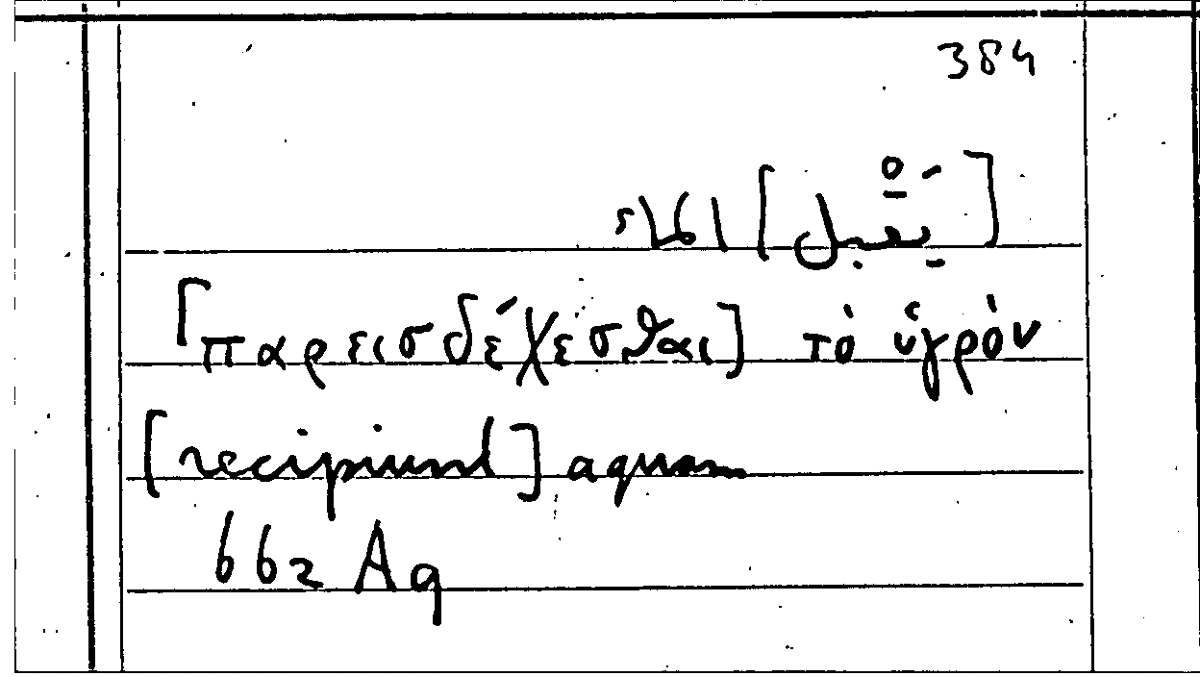 384
[يَقْبل] الماء
[παρεισδέχεσθαι] τὸ ὑγρὸν
[recipiunt] aquam
662 Aq